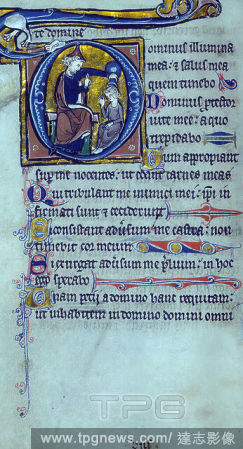 te domine
ominus illumina
mea: & salus mea
quem timebo
Dominus ptector
uite mee: a quo
trepidabo
Dum appropiant
sup me nocentes: ut edant carnes meas
Qui tribulant me inimici mei: ipi in
firmati sunt & ceciderunt
Si consistant adusum me castra: non
timebit cor meum
Si exurgat adusum me plium: in hoc
ego sperabo
Unam petii a domino hanc requiram:
ut inhabitem in domo domini omni
TPG
www.tpgnews.com/達志影像